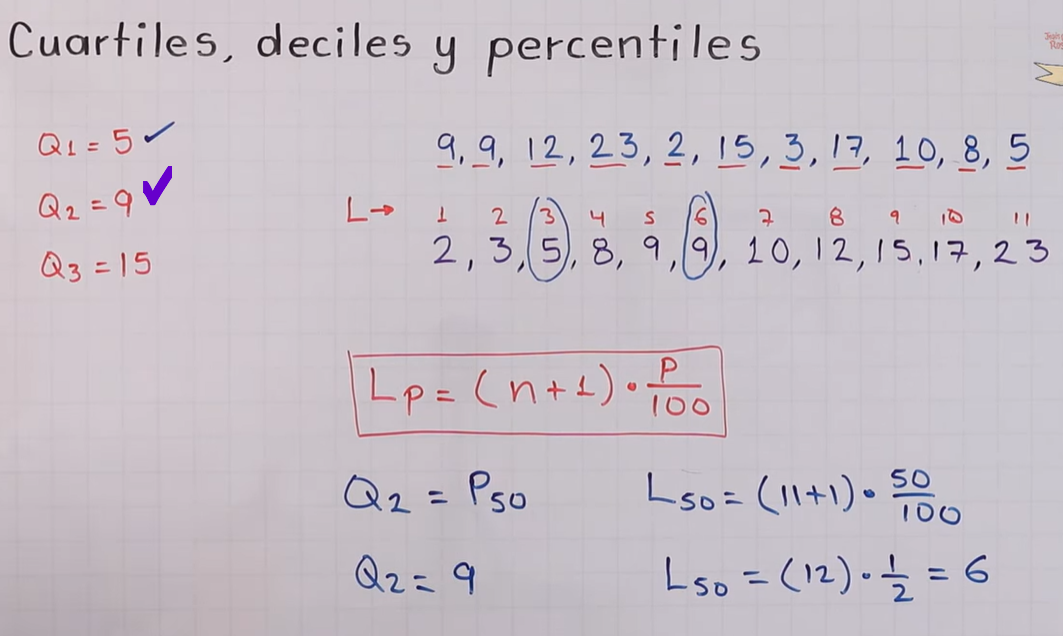 Cuartiles, deciles y percentiles
Q1 = 5 ✓
Q2 = 9 ✓
Q3 = 15
9, 9, 12, 23, 2, 15, 3, 17, 10, 8, 5
L→ 1 2 3 4 5 6 7 8 9 10 11
2, 3, 5, 8, 9, 9, 10, 12, 15, 17, 23
Lp = (n+1) · P/100
Q2 = P50
L50 = (11+1) · 50/100
Q2 = 9
L50 = (12) · 1/2 = 6